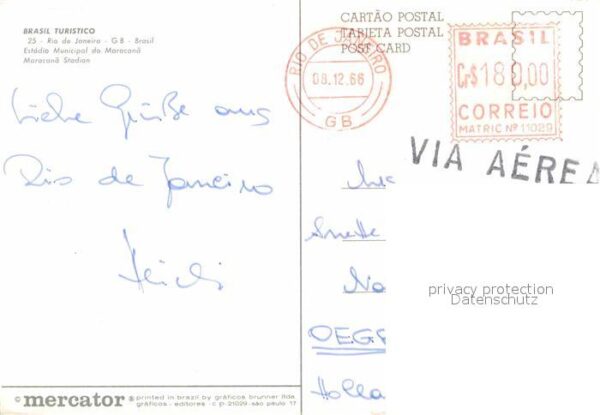 BRASIL TURISTICO
25 - Rio de Janeiro - GB - Brasil
Estádio Municipal do Maracanã
Maracanã Stadion
CARTÃO POSTAL
TARJETA POSTAL
POST CARD
RIO DE JANEIRO
08.12.66
GB
BRASIL
Cr$180,00
CORREIO
MATRIC Nº 11029
VIA AÉREA
Liebe Grüße aus
Rio de Janeiro
Heidi
OEGS
Holla
privacy protection
Datenschutz
© mercator ® printed in brazil by gráficos brunner ltda.
gráficos - editores - c. p. 21029 - são paulo 17